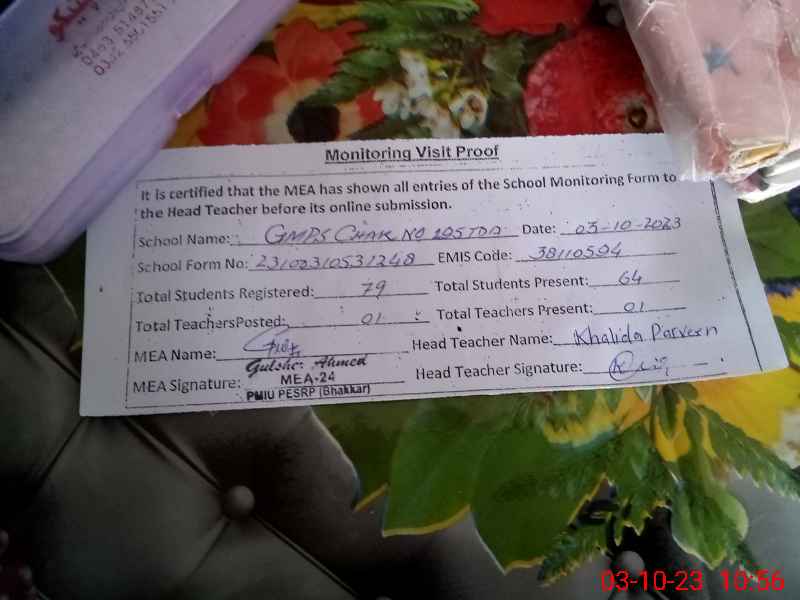 Monitoring Visit Proof
It is certified that the MEA has shown all entries of the School Monitoring Form to
the Head Teacher before its online submission.
School Name: GMPS CHAK NO 205TDA Date: 03-10-2023
School Form No: 23100310531248 EMIS Code: 38110594
Total Students Registered: 79 Total Students Present: 64
Total TeachersPosted: 01 Total Teachers Present: 01
MEA Name: Head Teacher Name: Khalida Parveen
Gulsher Ahmed
MEA Signature: MEA-24 Head Teacher Signature:
PMIU PESRP (Bhakkar)
03-10-23 10:56